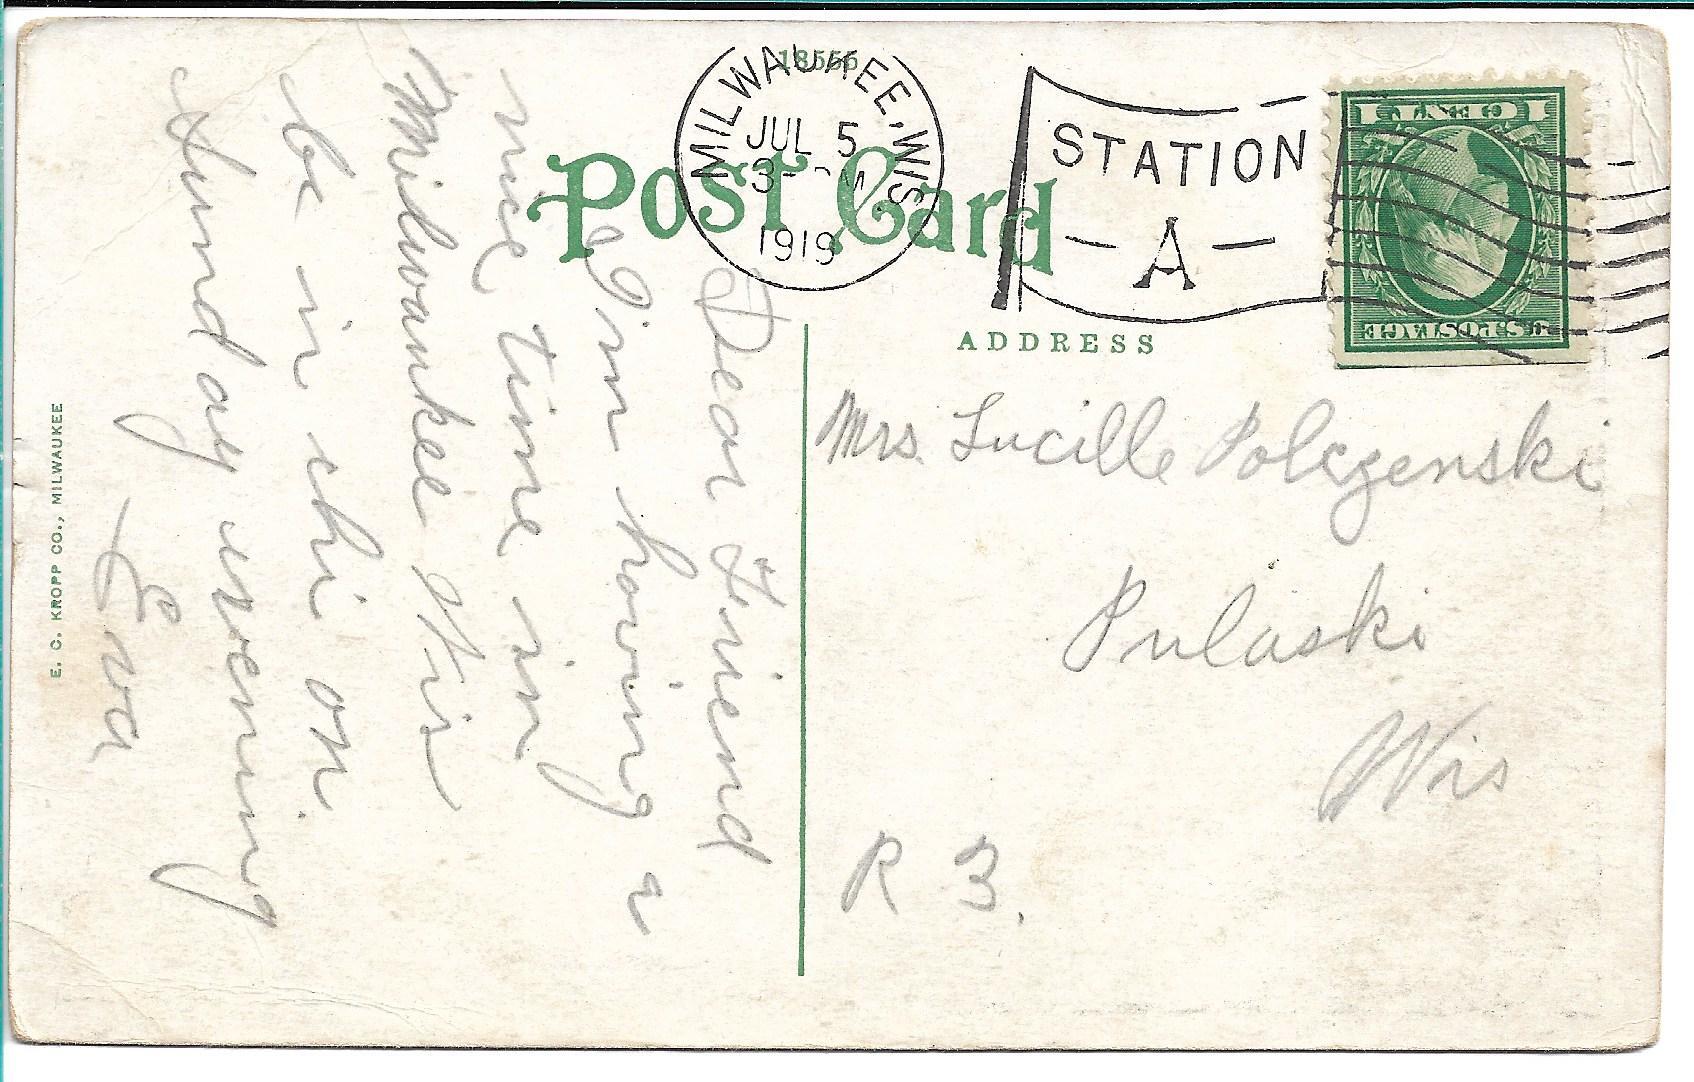 18555
Post Card
MILWAUKEE, WIS.
JUL 5
3- PM
1919
STATION
A
1 CENT 1
U.S. POSTAGE
ADDRESS
Mrs. Lucille Polczenski
Pulaski
Wis
R 3.
Dear Friend
I'm having a
nice time in
Milwaukee Wis
be in chi on
Sunday evening
Eva
E. C. KROPP CO., MILWAUKEE